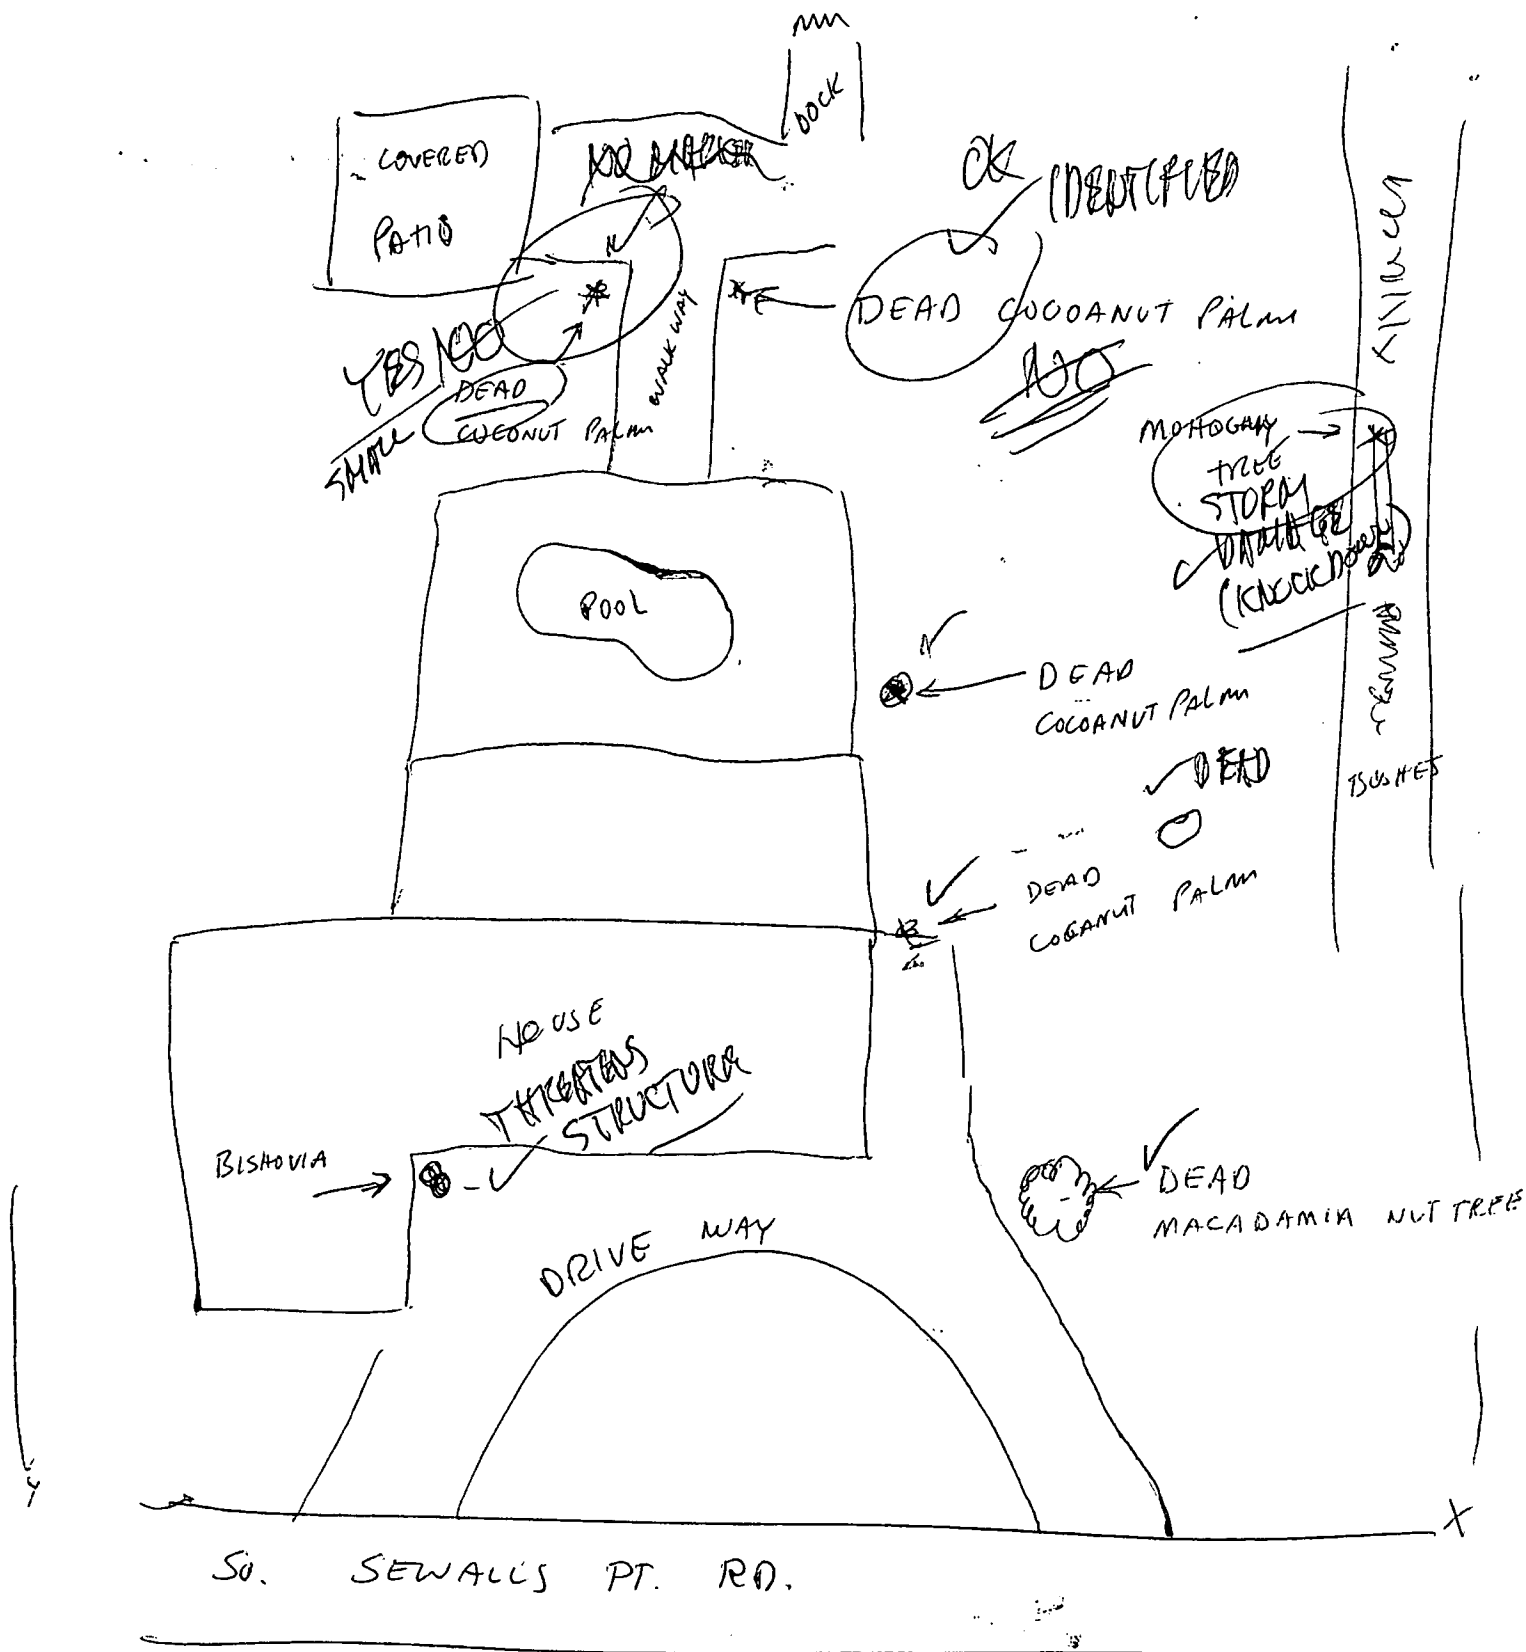 DOCK
COVERED
PATIO
NO MARKER
OK
IDENTIFIED
DEAD COCOANUT PALM
NO
YES NO
SMALL
DEAD
COCONUT PALM
WALKWAY
MOHOGANY
TREE
STORM
DAMAGE
(KNOCKDOWN)
POOL
DEAD
COCOANUT PALM
DEAD
DEAD
COCANUT PALM
BUSHES
HOUSE
THREATENS
STRUCTURE
BISHOVIA
DEAD
MACADAMIA NUT TREE
DRIVE WAY
X
So. SEWALLS PT. RD.